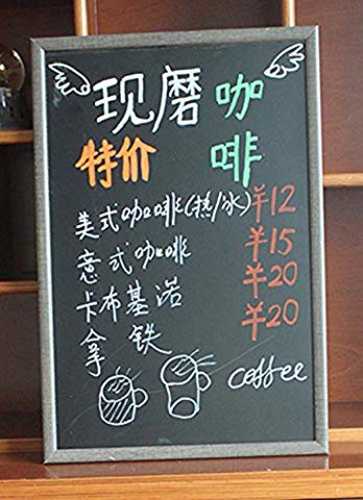 现磨咖
特价 啡
美式咖啡(热/冰) ¥12
意式咖啡 ¥15
卡布基诺 ¥20
拿铁 ¥20
coffee